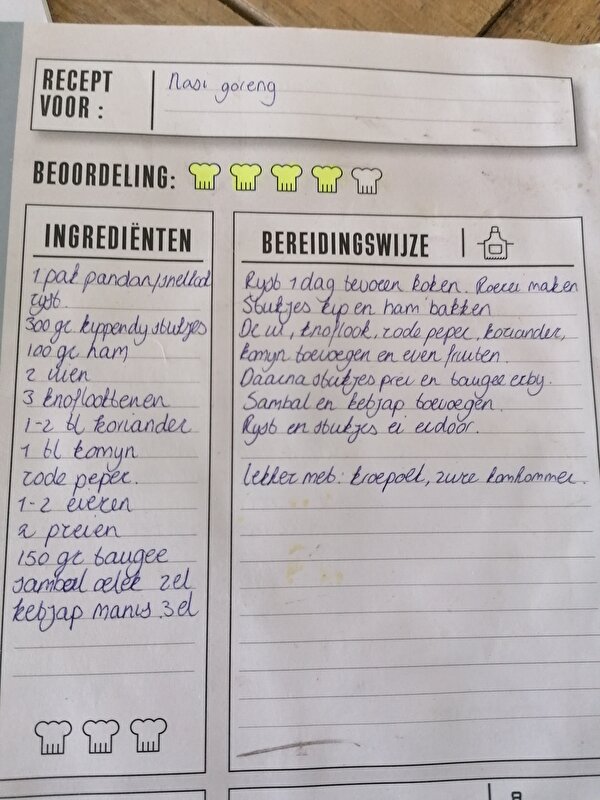 RECEPT VOOR :
Nasi goreng
BEOORDELING:
INGREDIËNTEN
1 pak pandan/snelkook
rijst
300 gr kippendij stukjes
100 gr ham
2 uien
3 knoflooktenen
1-2 tl koriander
1 tl komijn
rode peper.
1-2 eieren
2 preien
150 gr taugee
sambal oelek 2el
ketjap manis 3el
BEREIDINGSWIJZE
Rijst 1 dag tevoren koken. Roerei maken
Stukjes kip en ham bakken
De ui, knoflook, rode peper, koriander,
komijn toevoegen en even fruiten.
Daarna stukjes prei en taugee erbij.
Sambal en ketjap toevoegen.
Rijst en stukjes ei erdoor.
lekker met: kroepoek, zure komkommer.